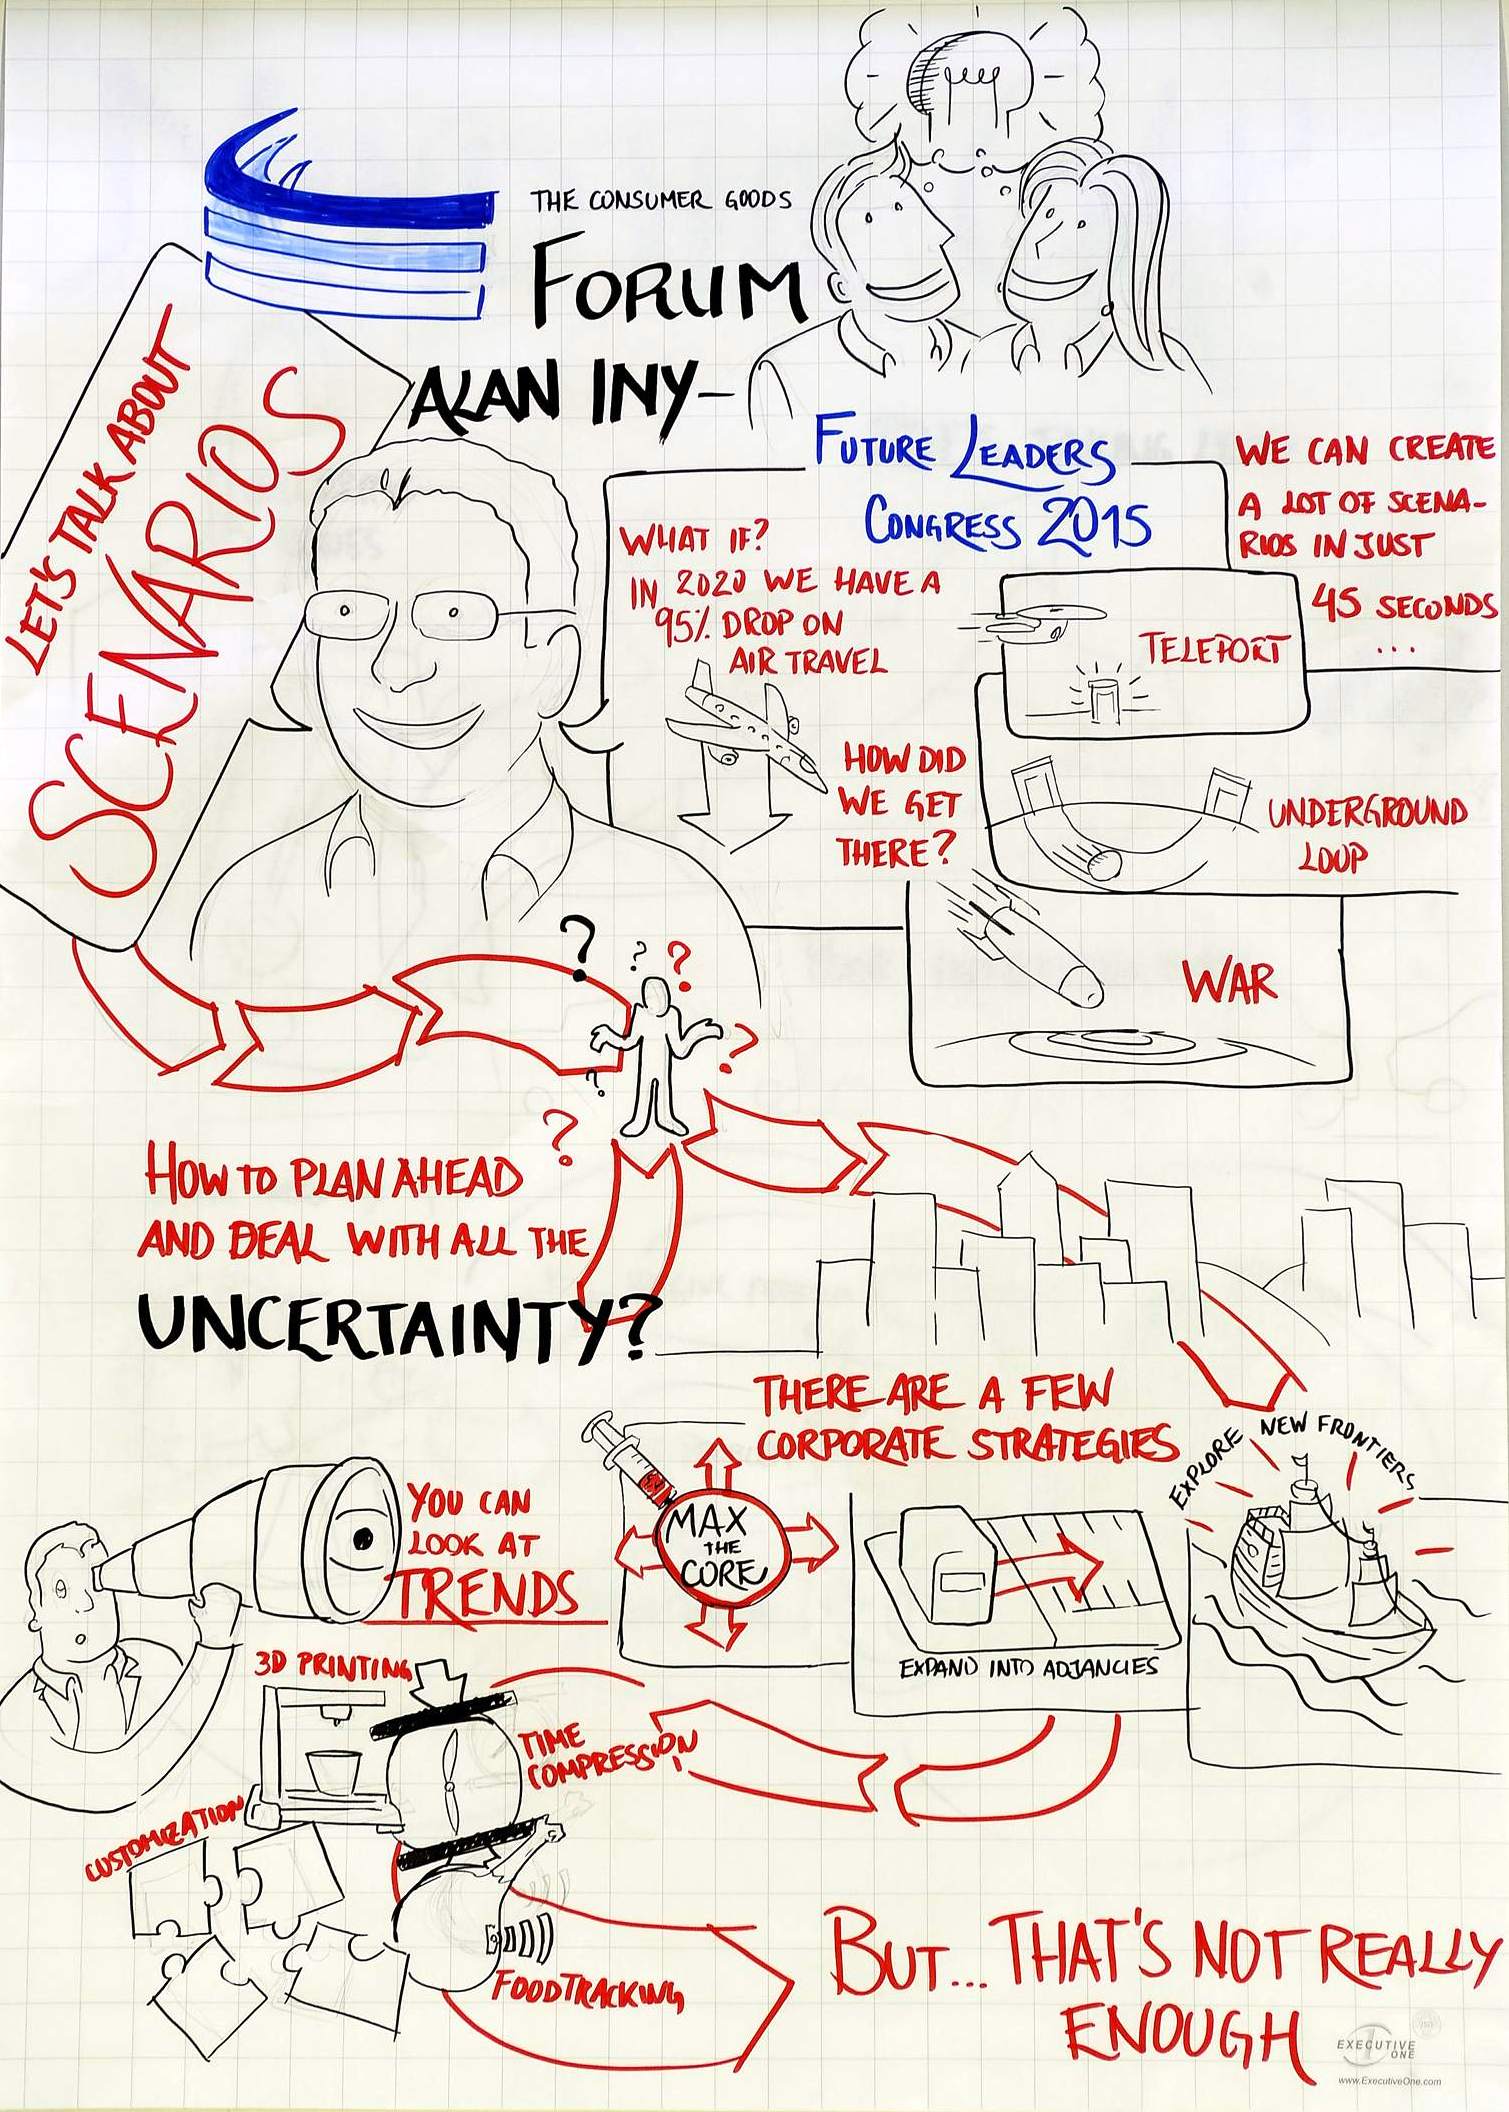 THE CONSUMER GOODS
FORUM
ALAN INY-
LET'S TALK ABOUT
SCENARIOS
FUTURE LEADERS
CONGRESS 2015
WHAT IF?
IN 2020 WE HAVE A
95% DROP ON
AIR TRAVEL
HOW DID
WE GET
THERE?
WE CAN CREATE
A LOT OF SCENA-
RIOS IN JUST
45 SECONDS
...
TELEPORT
UNDERGROUND
LOOP
WAR
? ? ?
?
?
?
HOW TO PLAN AHEAD
AND DEAL WITH ALL THE
UNCERTAINTY?
THERE ARE A FEW
CORPORATE STRATEGIES
MAX
THE
CORE
EXPAND INTO ADJANCIES
EXPLORE NEW FRONTIERS
YOU CAN
LOOK AT
TRENDS
3D PRINTING
TIME
COMPRESSION
CUSTOMIZATION
FOODTRACKING
BUT... THAT'S NOT REALLY
ENOUGH
EXECUTIVE
ONE
www.ExecutiveOne.com